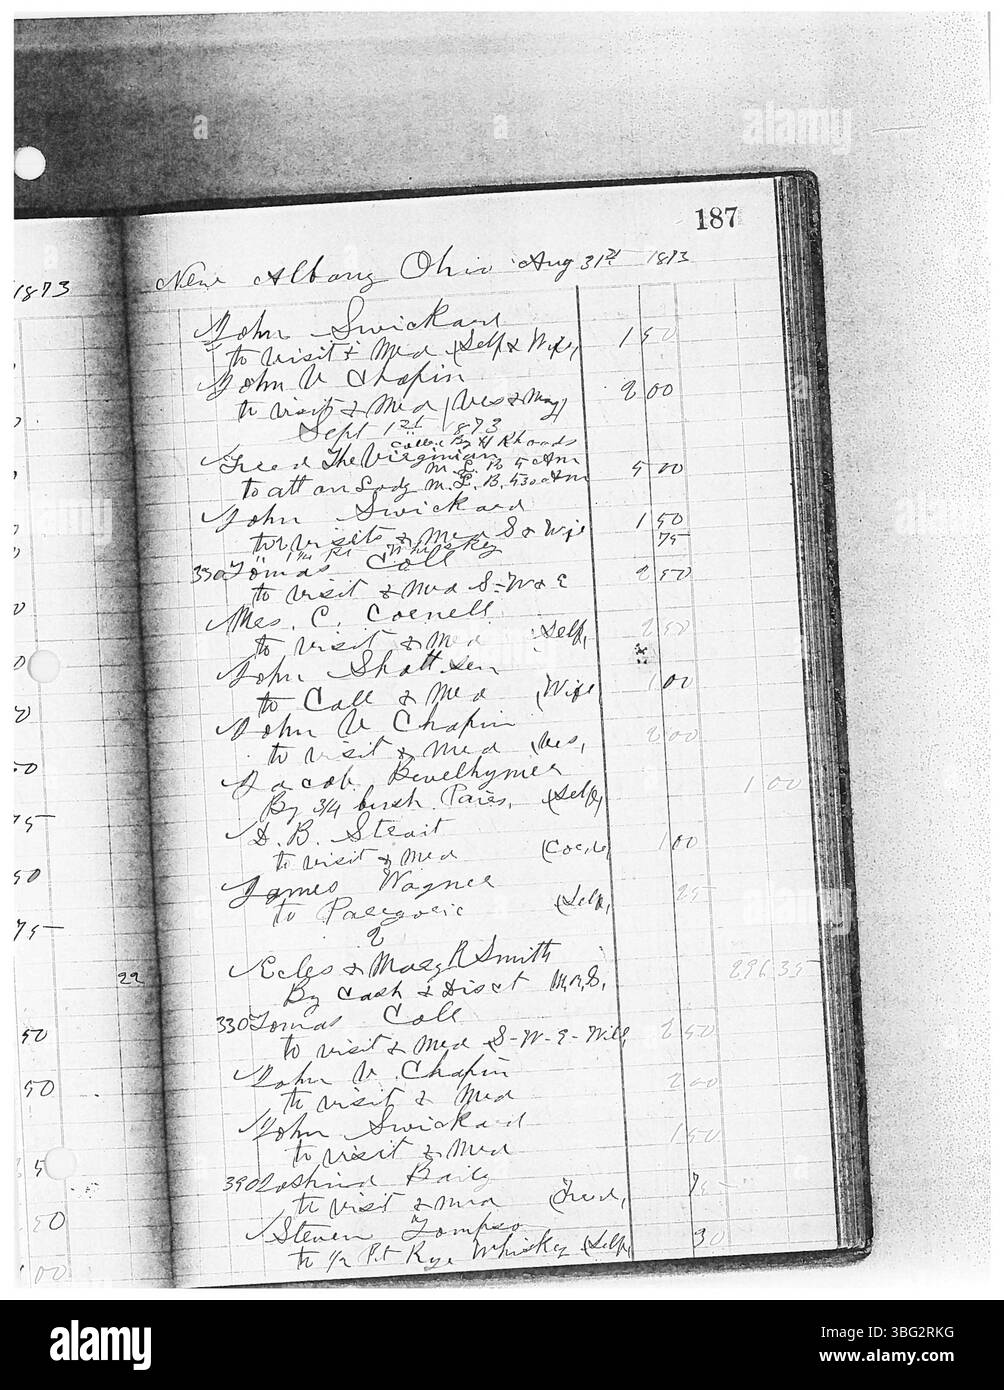 187
1873
New Albany Ohio Aug 31st 1873
John Swickard
to visit & Med (Self & Wife, 1 50
John V Chapin
to visit & Med (Ves & May) 2 00
Sept 1st 1873
Collec By H Rhoads
Freed The Virginian
M. L. B. 5 Am
to att on Lady M. L. B. 530 Am 5 00
John Swickard
to visits & Med S & Wife 1 50
75
330 Tomas Coll
to visit & Med S-W & E 2 50
Mrs. C. Cornell
to visit & Med (Self, 2 50
John Shott
to Call & Med (Wife 1 00
John V Chapin
to visit & Med (Ves, 2 00
Jacob Bevelhymer
By 3/4 bush (Self, 1 00
D. B. Strait
to visit & Med 1 00
James Wagner
to Paregoric (Self, 25
2
22
& Mary R Smith 296 35
By Cash & M. R. S.
330 Tomas Coll
to visit & Med S-W-E-Will 2 50
John V Chapin
to visit & Med 2 00
John Swickard
to visit & Med 1 50
390 Baily
to visit & Med (Fred, 75
Steven Tompso
to 1/2 Pt Rye Whiskey (Self, 30
75
50
75
50
50
50
00
a
a
alamy
alamy
Image ID: 3BG2RKG
www.alamy.com